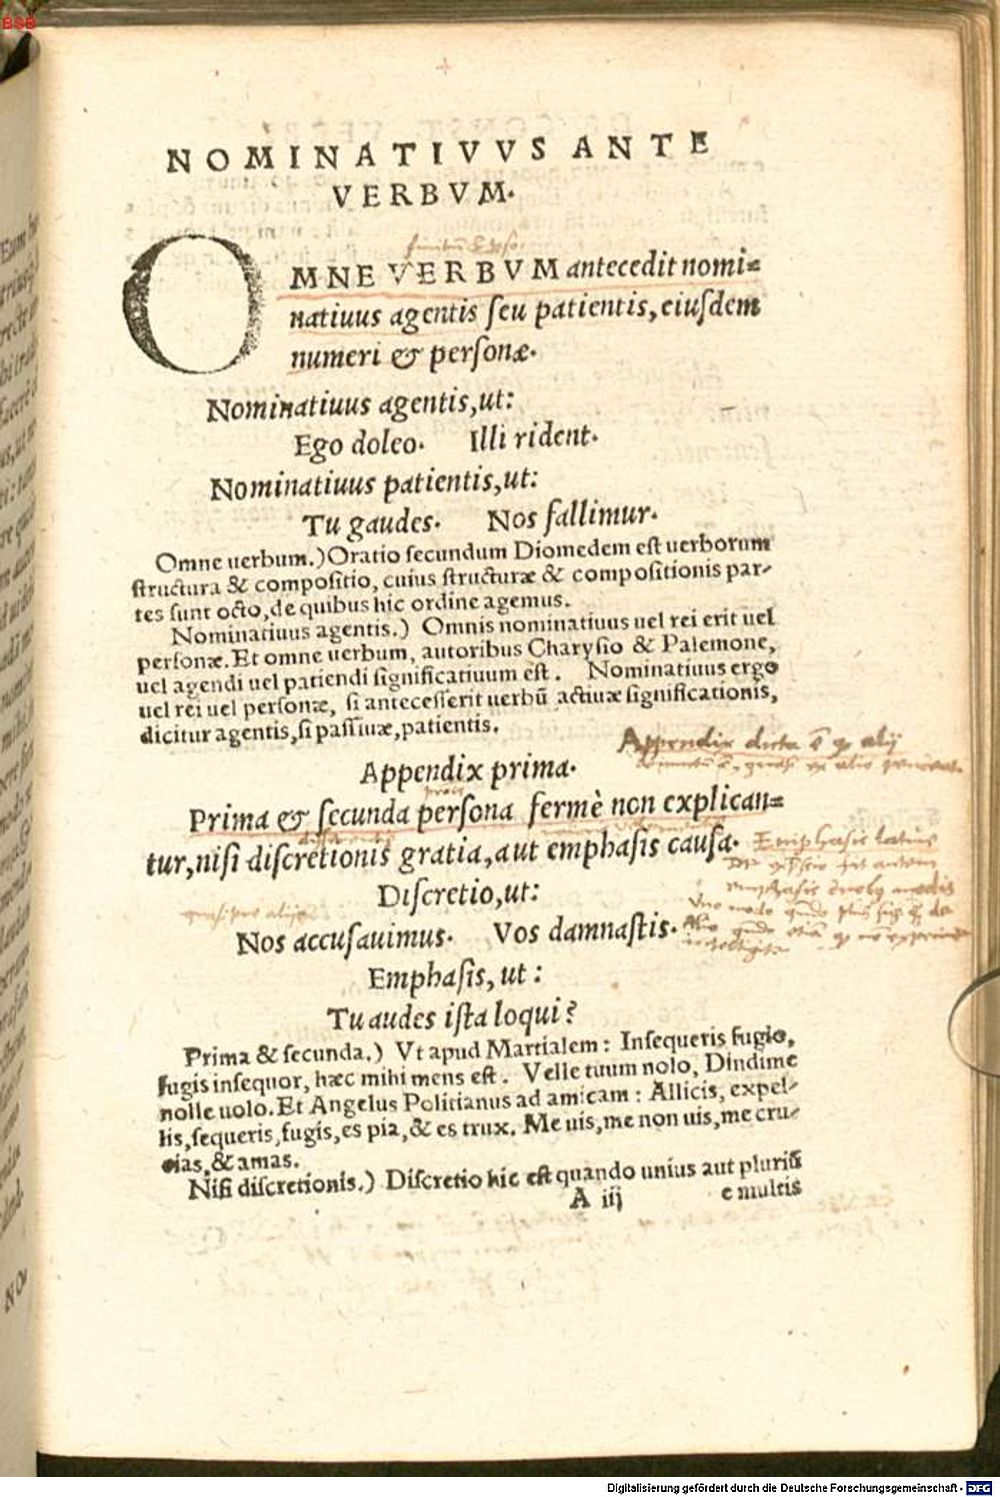 BSB
NOMINATIVVS ANTE
VERBVM.
OMNE VERBVM antecedit nomi=
natiuus agentis ſeu patientis, eiuſdem
numeri & perſonæ.
Nominatiuus agentis, ut:
Ego doleo. Illi rident.
Nominatiuus patientis, ut:
Tu gaudes. Nos fallimur.
Omne uerbum.) Oratio ſecundum Diomedem eſt uerborum
ſtructura & compoſitio, cuius ſtructuræ & compoſitionis par-
tes ſunt octo, de quibus hic ordine agemus.
Nominatiuus agentis.) Omnis nominatiuus uel rei erit uel
perſonæ. Et omne uerbum, autoribus Charyſio & Palemone,
uel agendi uel patiendi ſignificatiuum eſt. Nominatiuus ergo
uel rei uel perſonæ, ſi anteceſſerit uerbū actiuæ ſignificationis,
dicitur agentis, ſi paſſiuæ, patientis.
Appendix dicta
Appendix prima.
Prima & ſecunda perſona fermè non explican=
tur, niſi diſcretionis gratia, aut emphaſis cauſa.
Emphasis latine
Diſcretio, ut:
Nos accuſauimus. Vos damnaſtis.
Emphaſis, ut:
Tu audes iſta loqui?
Prima & ſecunda.) Vt apud Martialem: Inſequeris fugio,
fugis inſequor, hæc mihi mens eſt. Velle tuum nolo, Dindime
nolle uolo. Et Angelus Politianus ad amicam: Allicis, expel-
lis, ſequeris, fugis, es pia, & es trux. Me uis, me non uis, me cru-
cias, & amas.
Niſi diſcretionis.) Diſcretio hic eſt quando unius aut pluriū
A iij e multis
Digitalisierung gefördert durch die Deutsche Forschungsgemeinschaft - DFG